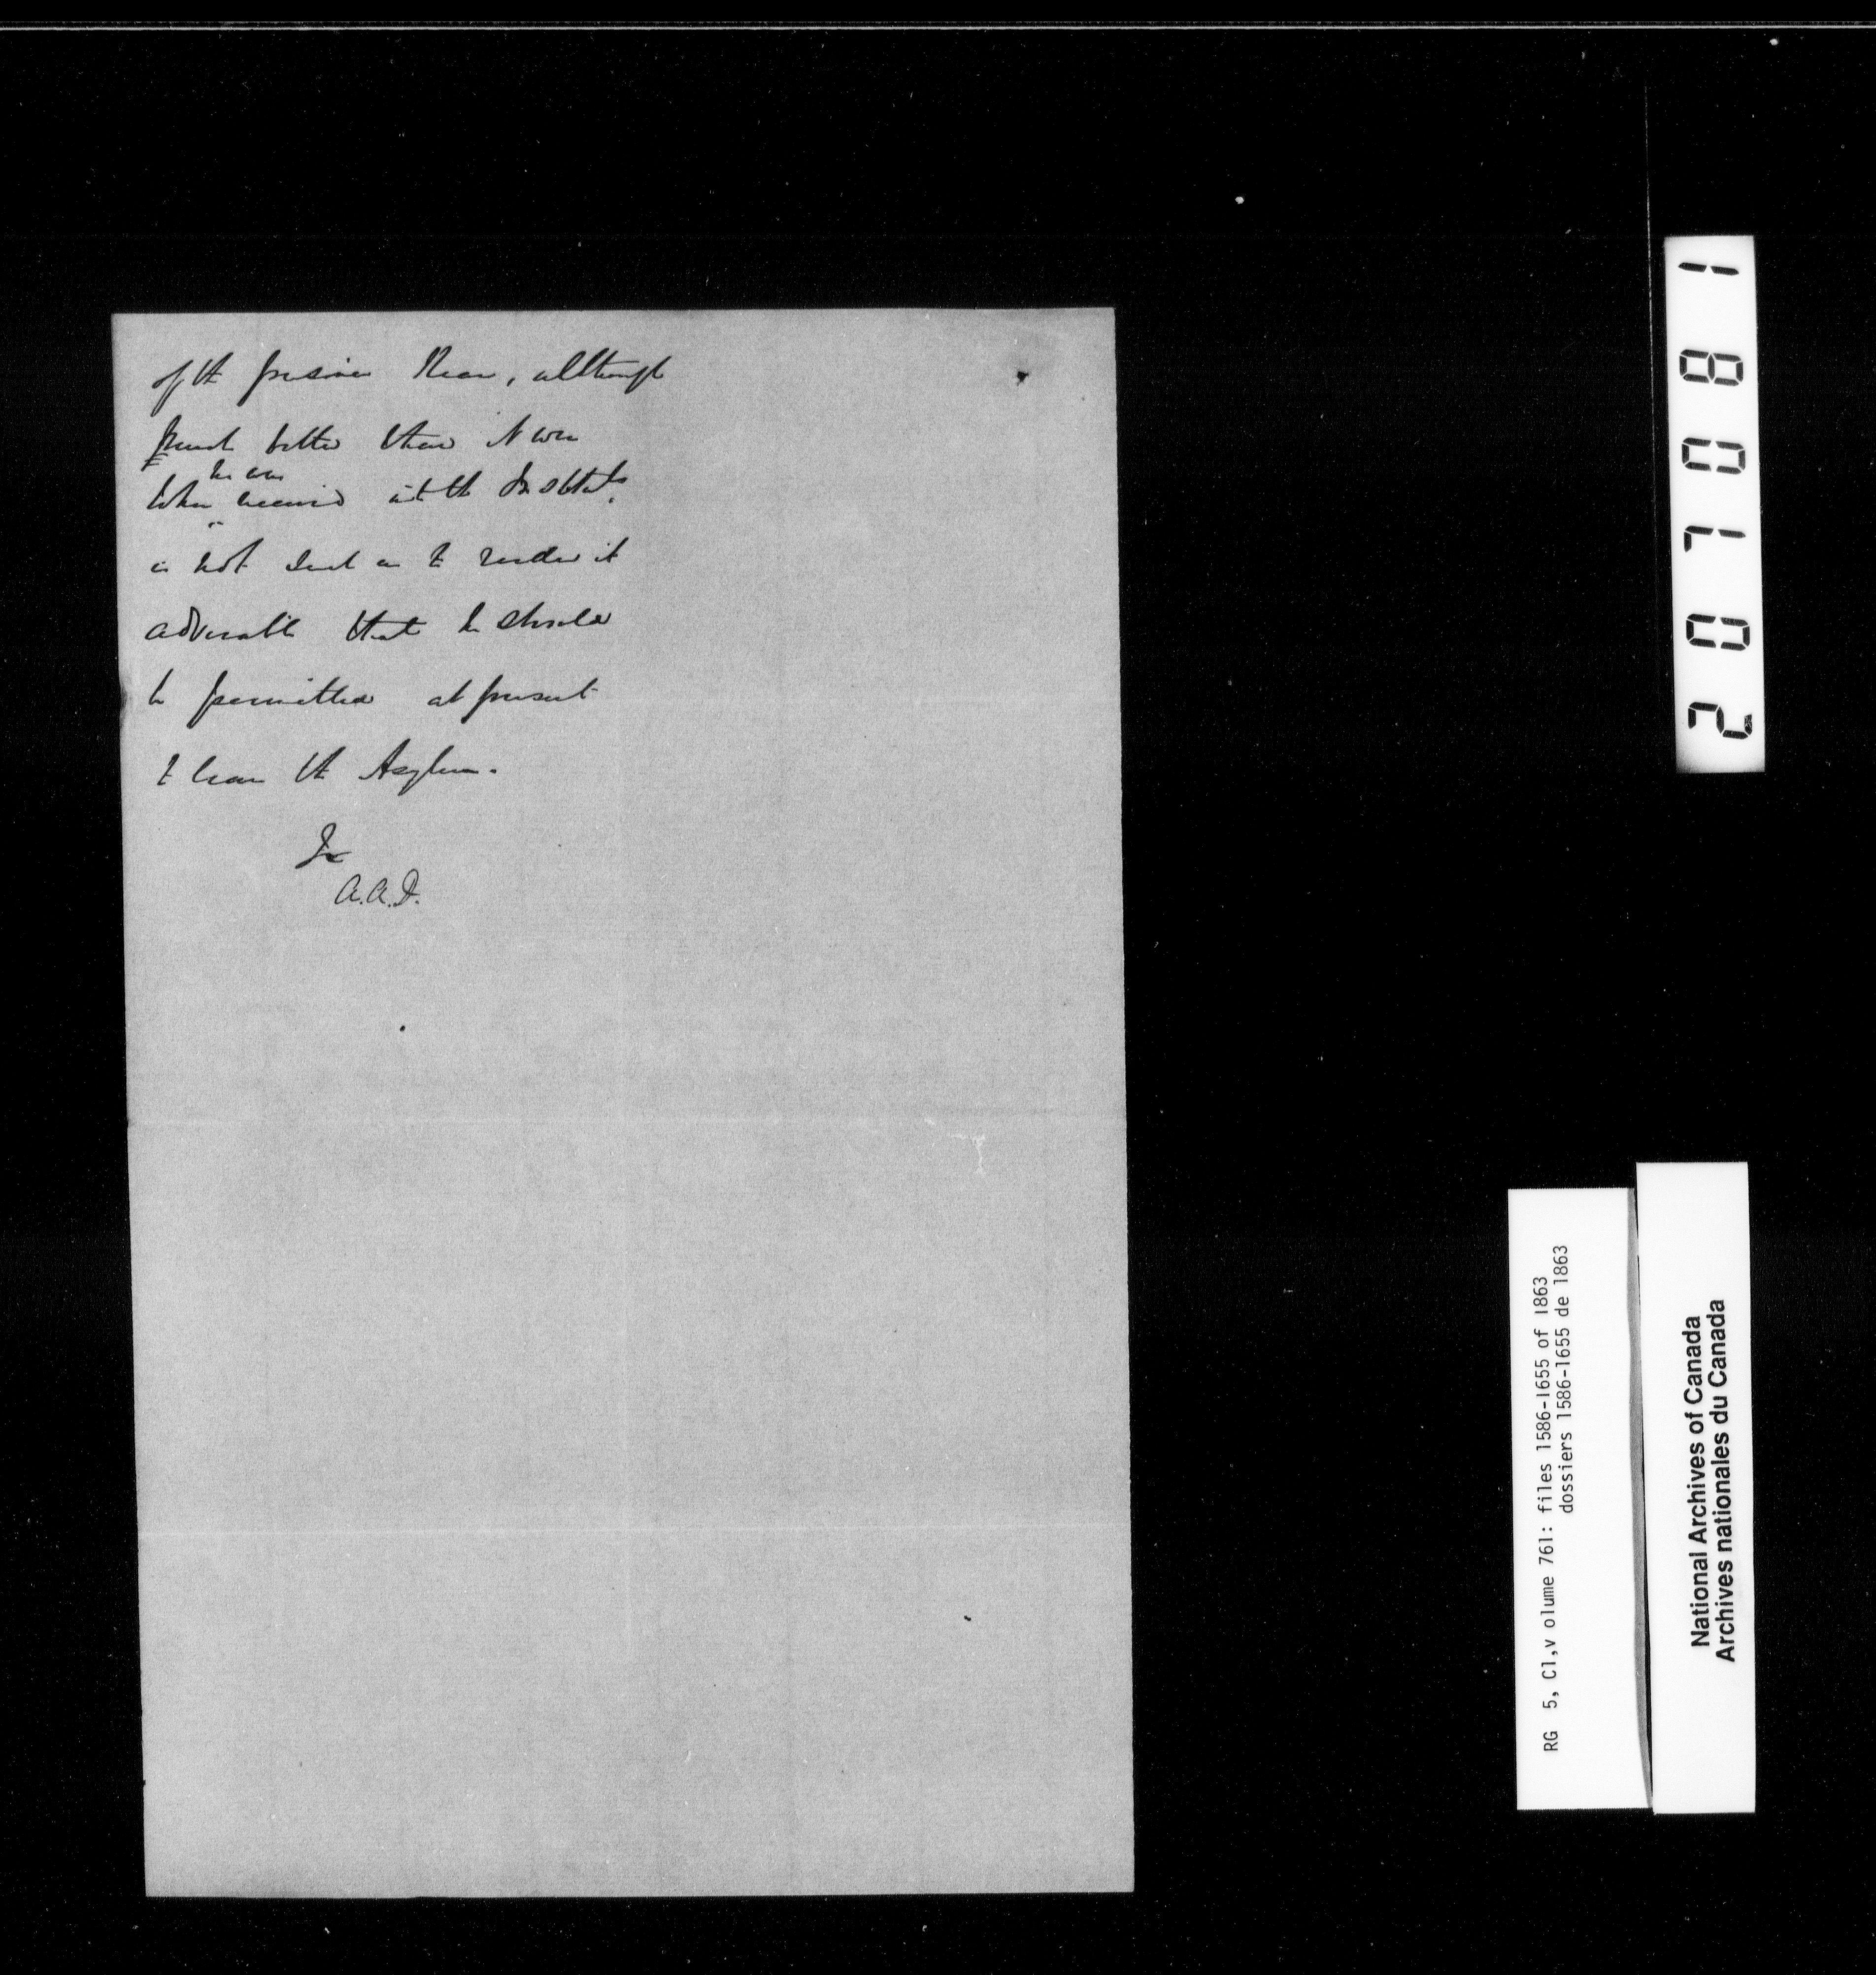 of the prisoner , although
much better than it was
he was
when received into the Institute,
is not such as to render it
advisable that he should
be permitted at present
to leave the Asylum.
A.A.D.
207081
RG 5, C1,v olume 761: files 1586-1655 of 1863
dossiers 1586-1655 de 1863
National Archives of Canada
Archives nationales du Canada